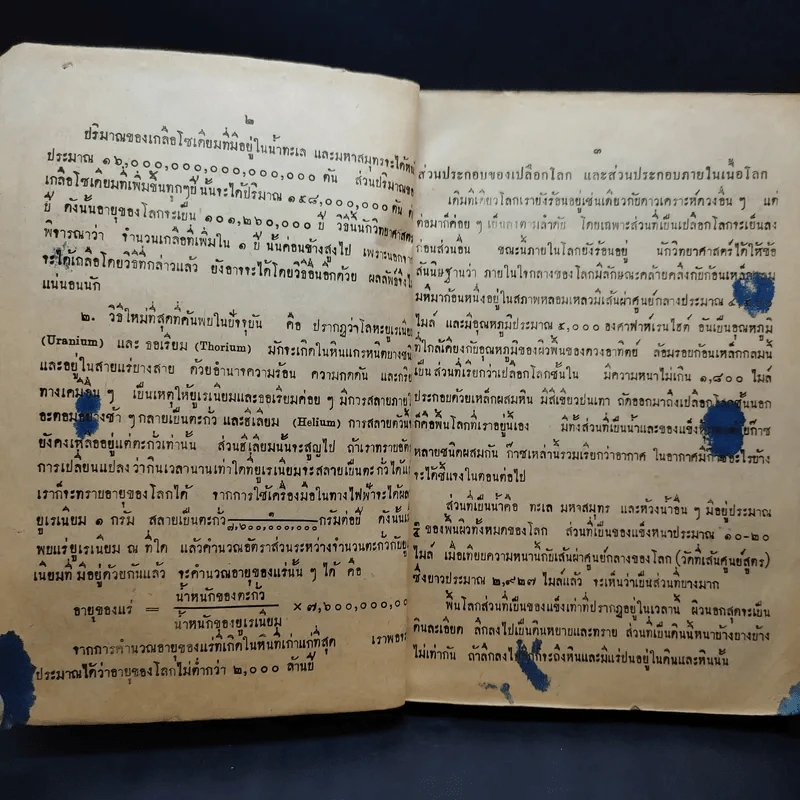 ๒
ปริมาณของเกลือโซเดียมที่มีอยู่ในน้ำทะเล และมหาสมุทรจะได้
ประมาณ ๑๖,๐๐๐,๐๐๐,๐๐๐,๐๐๐,๐๐๐ ตัน ส่วนปริมาณของ
เกลือโซเดียมที่เพิ่มขึ้นทุกๆปีนั้นจะได้ปริมาณ ๑๕๘,๐๐๐,๐๐๐ ตัน
ปี ดังนั้นอายุของโลกจะเป็น ๑๐๑,๒๖๐,๐๐๐ ปี วิธีนี้นักวิทยาศาสตร์
พิจารณาว่า จำนวนเกลือที่เพิ่มใน ๑ ปี นั้นค่อนข้างสูงไป เพราะนอกจาก
จะได้เกลือโดยวิธีที่กล่าวแล้ว ยังอาจจะได้โดยวิธีอื่นอีกด้วย ผลลัพธ์จึงไม่
แน่นอนนัก
๒. วิธีใหม่ที่สุดที่ค้นพบในปัจจุบัน คือ ปรากฏว่าโลหะยูเรเนียม
(Uranium) และ ธอเรียม (Thorium) มักจะเกิดในหินแกรนิตบางชนิด
และอยู่ในสายแร่บางสาย ด้วยอำนาจความร้อน ความกดดัน และกริยา
ทางเคมีอื่น ๆ เป็นเหตุให้ยูเรเนียมและธอเรียมค่อย ๆ มีการสลายภายใน
อะตอมอย่างช้า ๆ กลายเป็นตะกั่ว และฮิเลียม (Helium) การสลายตัวนี้
ยังคงเหลืออยู่แต่ตะกั่วเท่านั้น ส่วนฮิเลียมนั้นจะสูญไป ถ้าเราทราบอัตรา
การเปลี่ยนแปลง ว่ากินเวลานานเท่าใดที่ยูเรเนียมจะสลายเป็นตะกั่วได้แล้ว
เราก็จะทราบอายุของโลกได้ จากการใช้เครื่องมือในทางไฟฟ้าจะได้ผล
ยูเรเนียม ๑ กรัม สลายเป็นตะกั่ว ๑/๗,๖๐๐,๐๐๐,๐๐๐ กรัมต่อปี ดังนั้น
พบแร่ยูเรเนียม ณ ที่ใด แล้วคำนวณอัตราส่วนระหว่างจำนวนตะกั่วกับยูเร
เนียมที่ มีอยู่ด้วยกันแล้ว จะคำนวณอายุของแร่นั้น ๆ ได้ คือ
อายุของแร่ = น้ำหนักของตะกั่ว/น้ำหนักของยูเรเนียม × ๗,๖๐๐,๐๐๐,๐๐๐
จากการคำนวณอายุของแร่ที่เกิดในหินที่เก่าแก่ที่สุด เราพอจะ
ประมาณได้ว่าอายุของโลกไม่ต่ำกว่า ๒,๐๐๐ ล้านปี
๓
ส่วนประกอบของเปลือกโลก และส่วนประกอบภายในเนื้อโลก
เดิมทีเดียวโลกเรายังร้อนอยู่เช่นเดียวกับดาวเคราะห์ดวงอื่น ๆ แต่
ต่อมาก็ค่อย ๆ เย็นลงตามลำดับ โดยเฉพาะส่วนที่เป็นเปลือกโลกจะเย็นลง
ก่อนส่วนอื่น ขณะนี้ภายในโลกยังร้อนอยู่ นักวิทยาศาสตร์ได้ให้ข้อ
สันนิษฐานว่า ภายในใจกลางของโลกมีลักษณะคล้ายคลึงกับก้อนเหล็กกลม
มหึมาก้อนหนึ่งอยู่ในสภาพหลอมเหลวมีเส้นผ่าศูนย์กลางประมาณ
ไมล์ และมีอุณหภูมิประมาณ ๕,๐๐๐ องศาฟาห์เรนไฮต์ อันเป็นอุณหภูมิ
ที่ใกล้เคียงกับอุณหภูมิของผิวพื้นของดวงอาทิตย์ ล้อมรอบก้อนเหล็กกลมนี้
เป็น ส่วนที่เรียกว่าเปลือกโลกชั้นใน มีความหนาไม่เกิน ๑,๘๐๐ ไมล์
ประกอบด้วยเหล็กผสมหิน มีสีเขียวปนเทา ถัดออกมาถึงเปลือกโลกชั้นนอก
ก็คือพื้นโลกที่เราอยู่นี้เอง มีทั้งส่วนที่เป็นน้ำและของแข็ง ก๊าซ
หลายชนิดผสมกัน ก๊าซเหล่านี้รวมเรียกว่าอากาศ ในอากาศมีก๊าซอะไรบ้าง
จะได้ชี้แจงในตอนต่อไป
ส่วนที่เป็นน้ำคือ ทะเล มหาสมุทร และห้วงน้ำอื่น ๆ มีอยู่ประมาณ
ของพื้นผิวทั้งหมดของโลก ส่วนที่เป็นของแข็งหนาประมาณ ๑๐-๒๐
ไมล์ เมื่อเทียบความหนานี้กับเส้นผ่าศูนย์กลางของโลก (วัดที่เส้นศูนย์สูตร)
ซึ่งยาวประมาณ ๒,๙๒๗ ไมล์แล้ว จะเห็นว่าเป็นส่วนที่บางมาก
พื้นโลกส่วนที่เป็นของแข็งเท่าที่ปรากฏอยู่ในเวลานี้ ผิวนอกสุดจะเป็น
ดินละเอียด ลึกลงไปเป็นดินหยาบและทราย ส่วนที่เป็นดินนี้หนาบ้างบางบ้าง
ไม่เท่ากัน ถ้าลึกลงไปอีกก็จะถึงหินและมีแร่ปนอยู่ในดินและหินนั้น